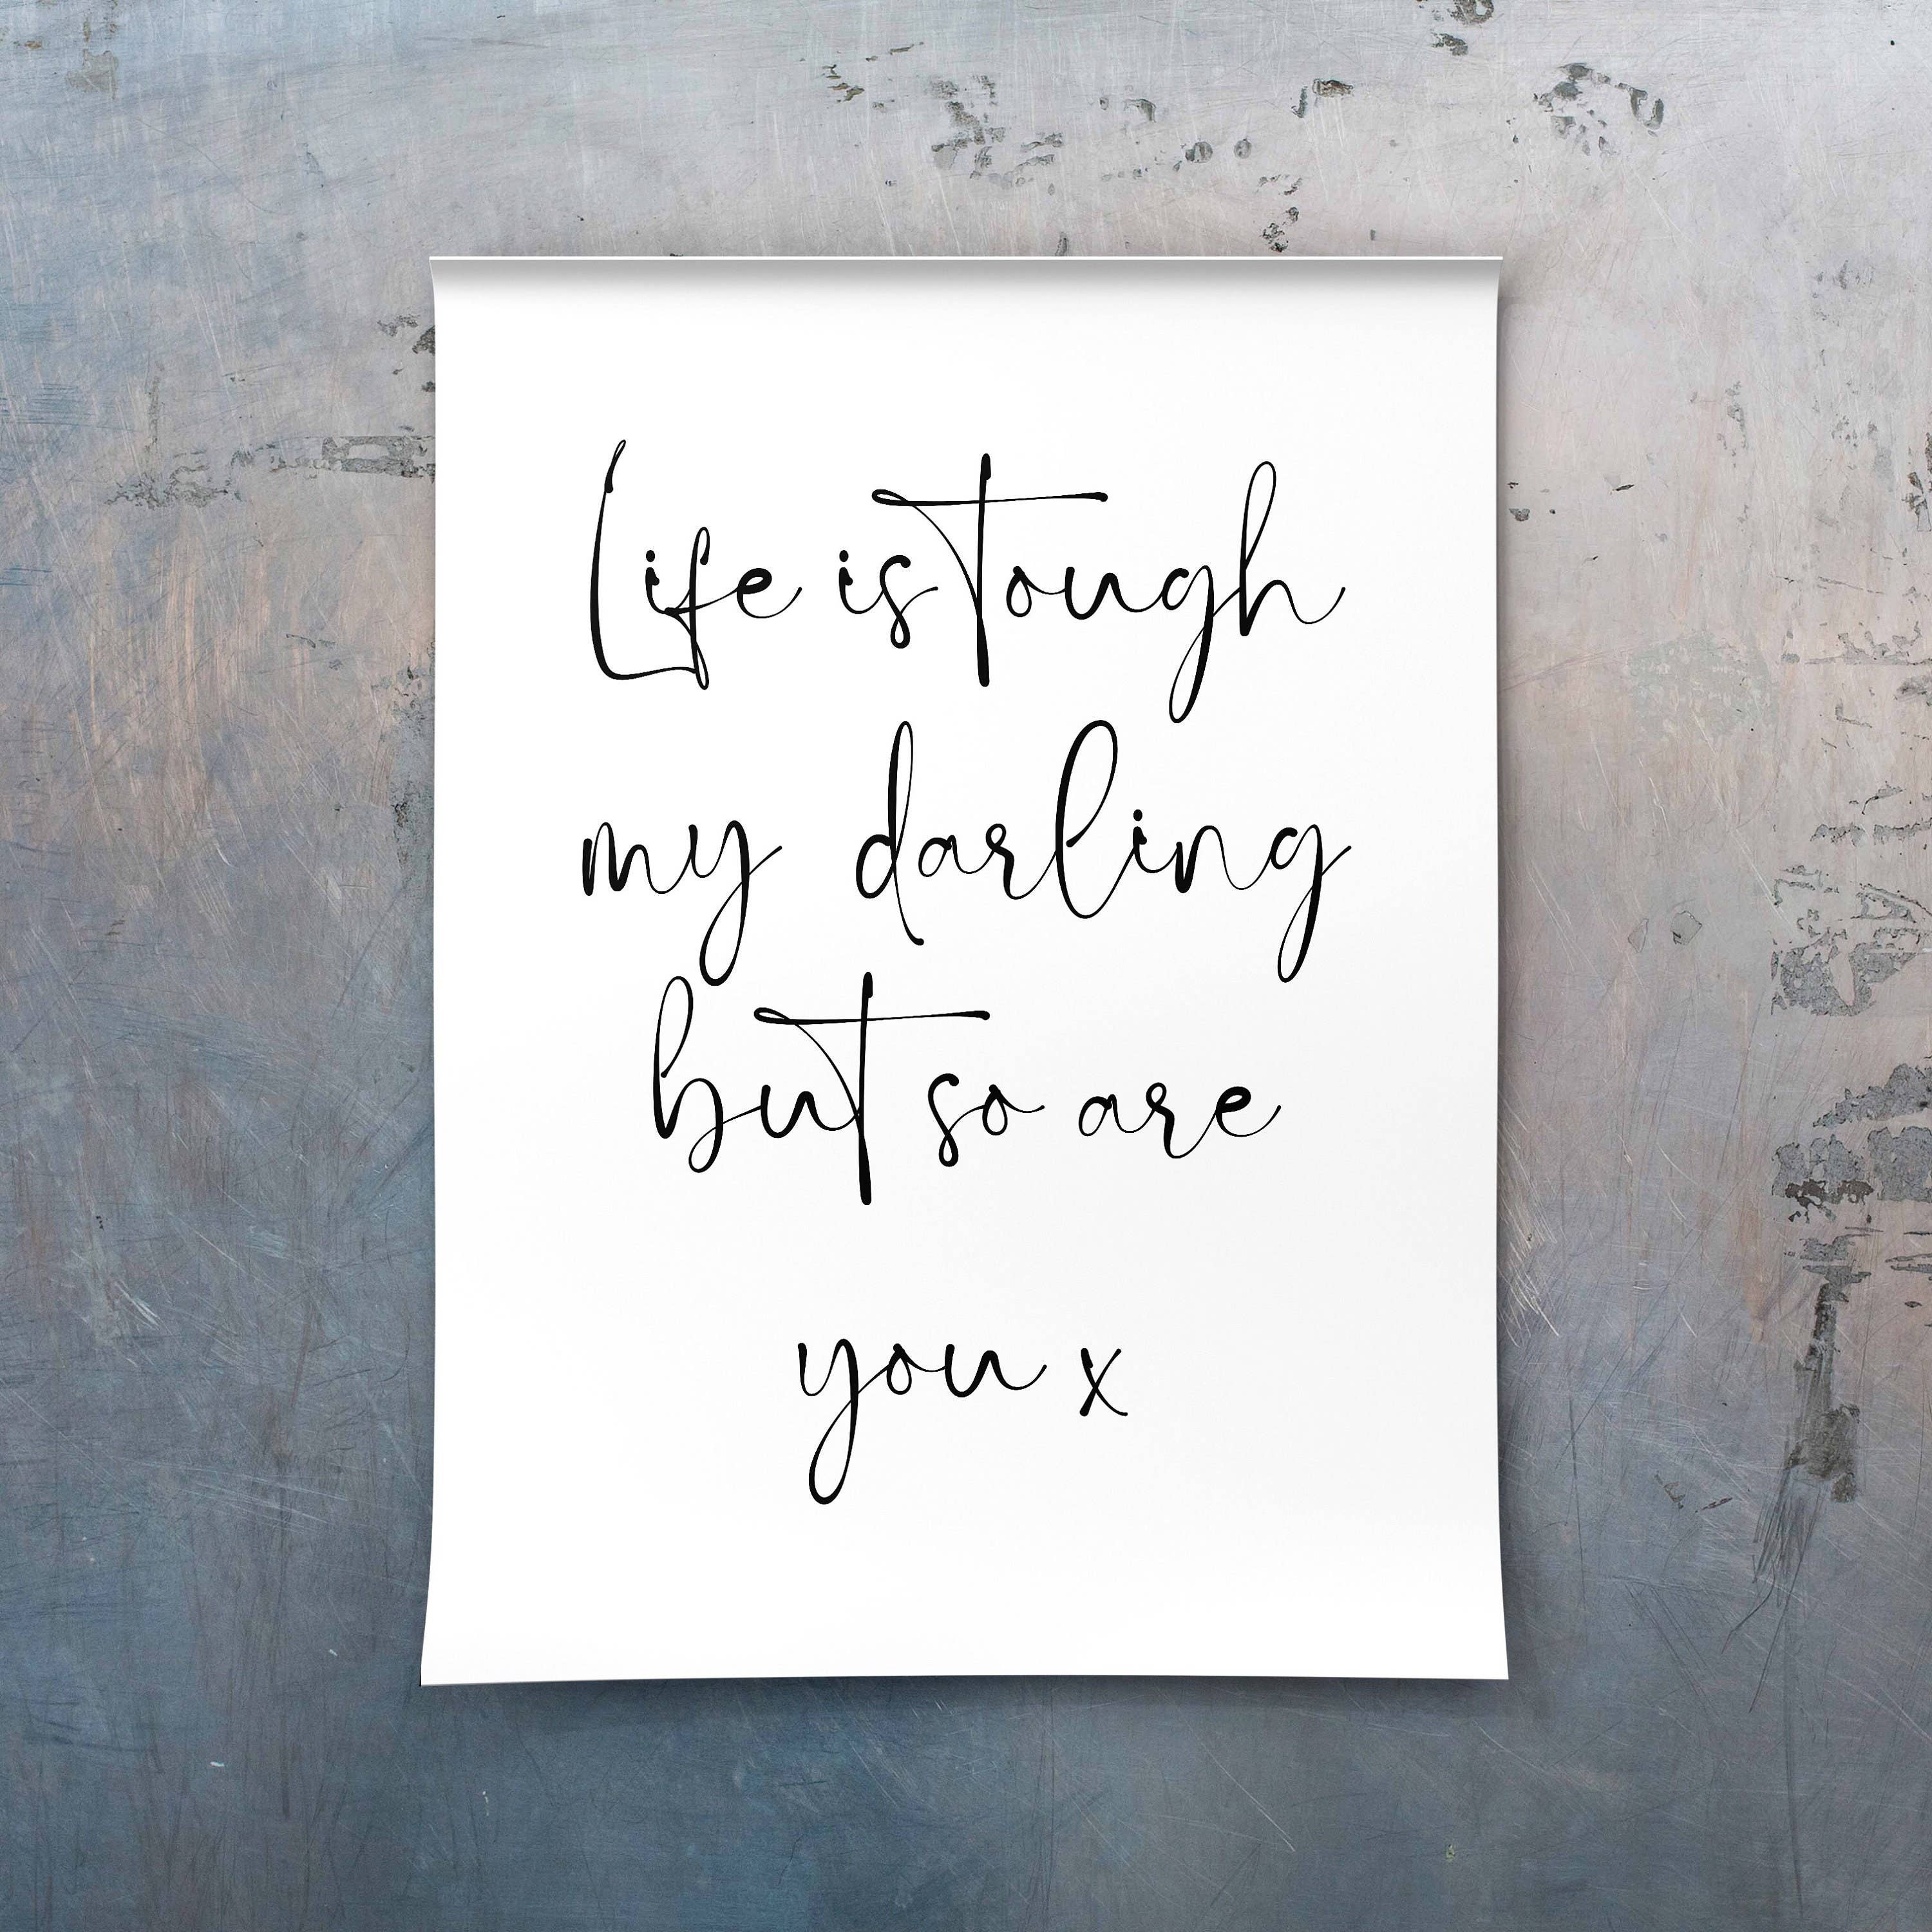 Life is tough
my darling
but so are
you x